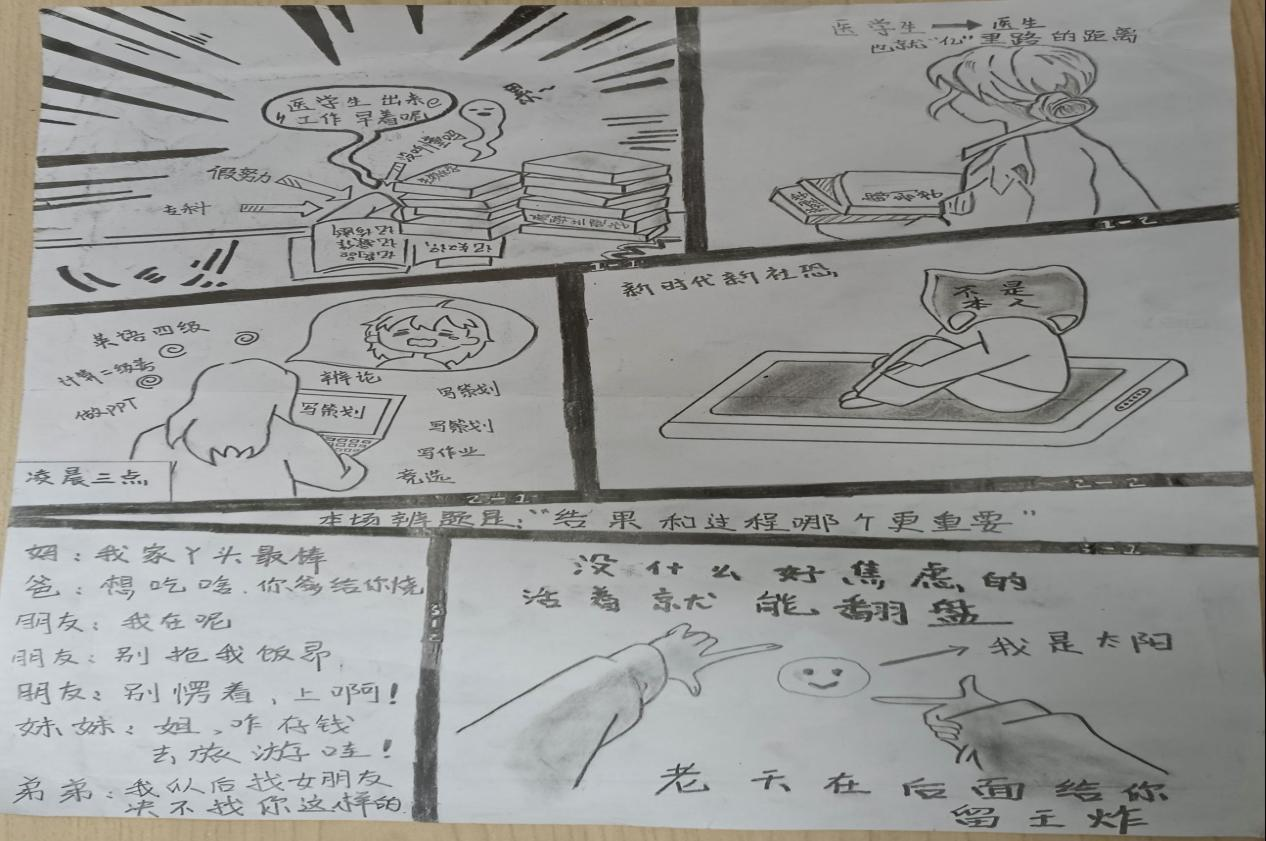 医学生出来
工作早着呢
累~
没听懂吗
假努力
专科
1-1
医学生→医生
也就“亿”里路的距离
1-2
英语四级
计算二级考
做PPT
凌晨三点
辨论
写策划
写策划
写策划
写作业
竞选
2-1
新时代新社恐
不是
本人
2-2
本场辨题是:“结果和过程哪个更重要”
3-1
妈:我家丫头最棒
爸:想吃啥.你爸给你烧
朋友:我在呢
朋友:别抢我饭昂.
朋友:别愣着,上啊!
妹妹:姐、咋存钱
去旅游哇!
弟弟:我以后找女朋友
决不找你这样的.
3-2
没什么好焦虑的
活着就能翻盘
我是太阳
老天在后面给你
留王炸